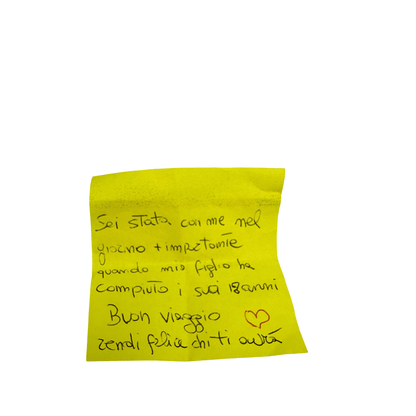 Sei stata con me nel
giorno + importante
quando mio figlio ha
compiuto i suoi 18 anni
Buon viaggio
rendi felice chi ti avrà